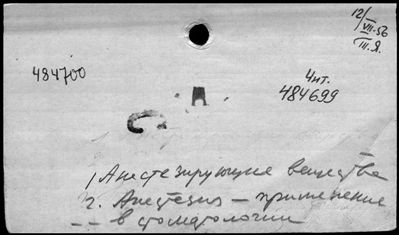 12/VII-56
III. Я.
484700
Чит.
484699
1) Анестезирующие вещества
2. Анестезия — применение
-- в стоматологии